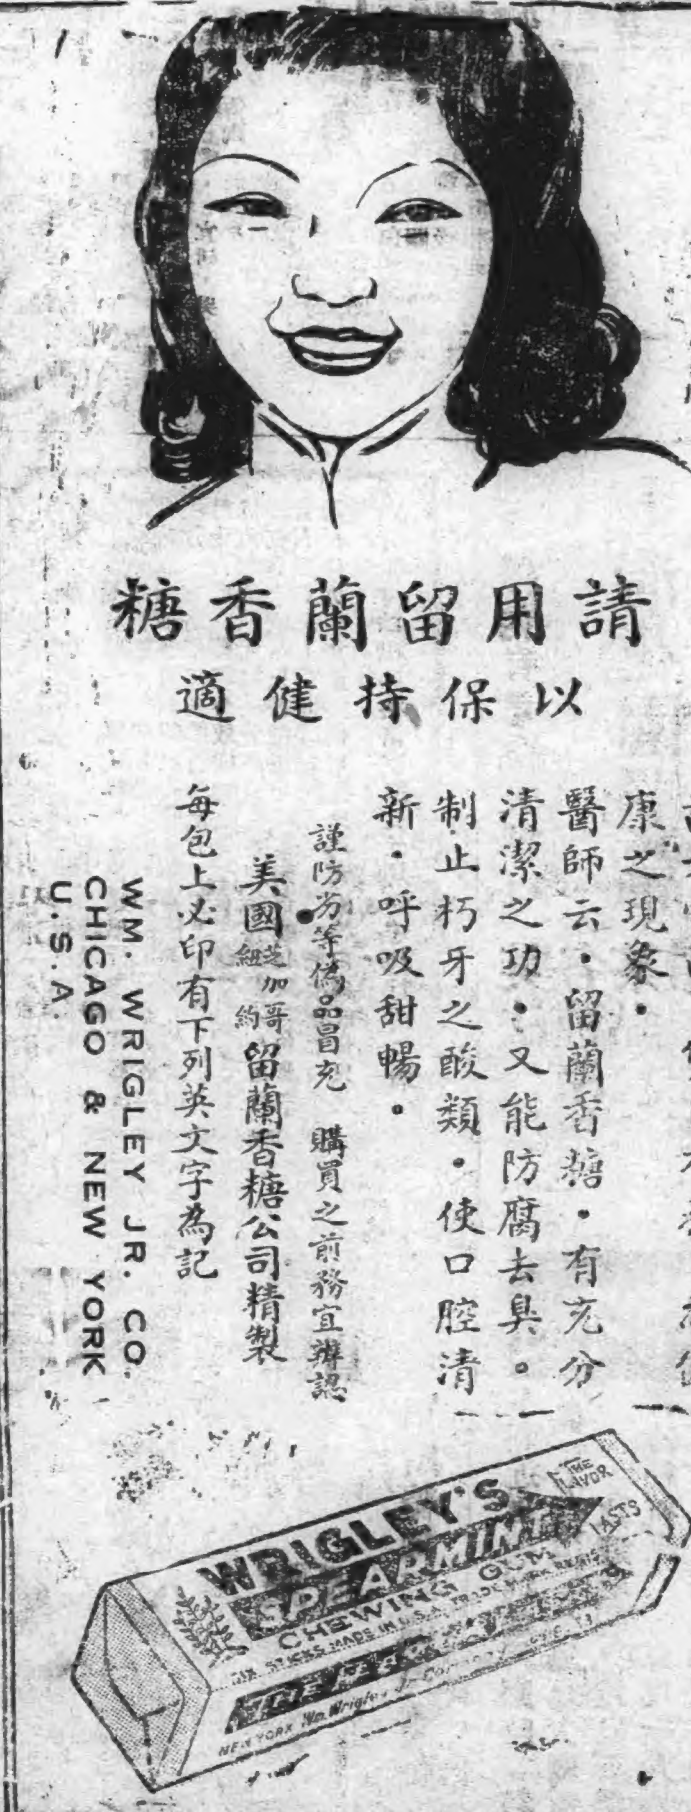 請用留蘭香糖
以保持健適
康之現象．
醫師云．留蘭香糖．有充分
清潔之功．又能防腐去臭。
制止朽牙之酸類。使口腔清
新．呼吸甜暢。
謹防劣等偽品冒充 購買之前務宜辨認
美國芝加哥紐約留蘭香糖公司精製
每包上必印有下列英文字為記
WM. WRIGLEY JR. CO.
CHICAGO & NEW YORK
U.S.A.
WRIGLEY'S
SPEARMINT
CHEWING GUM
SIX STICKS MADE IN U.S.A. TRADE MARK
THE
LASTS
NEW YORK Wm. Wrigley Jr. Company